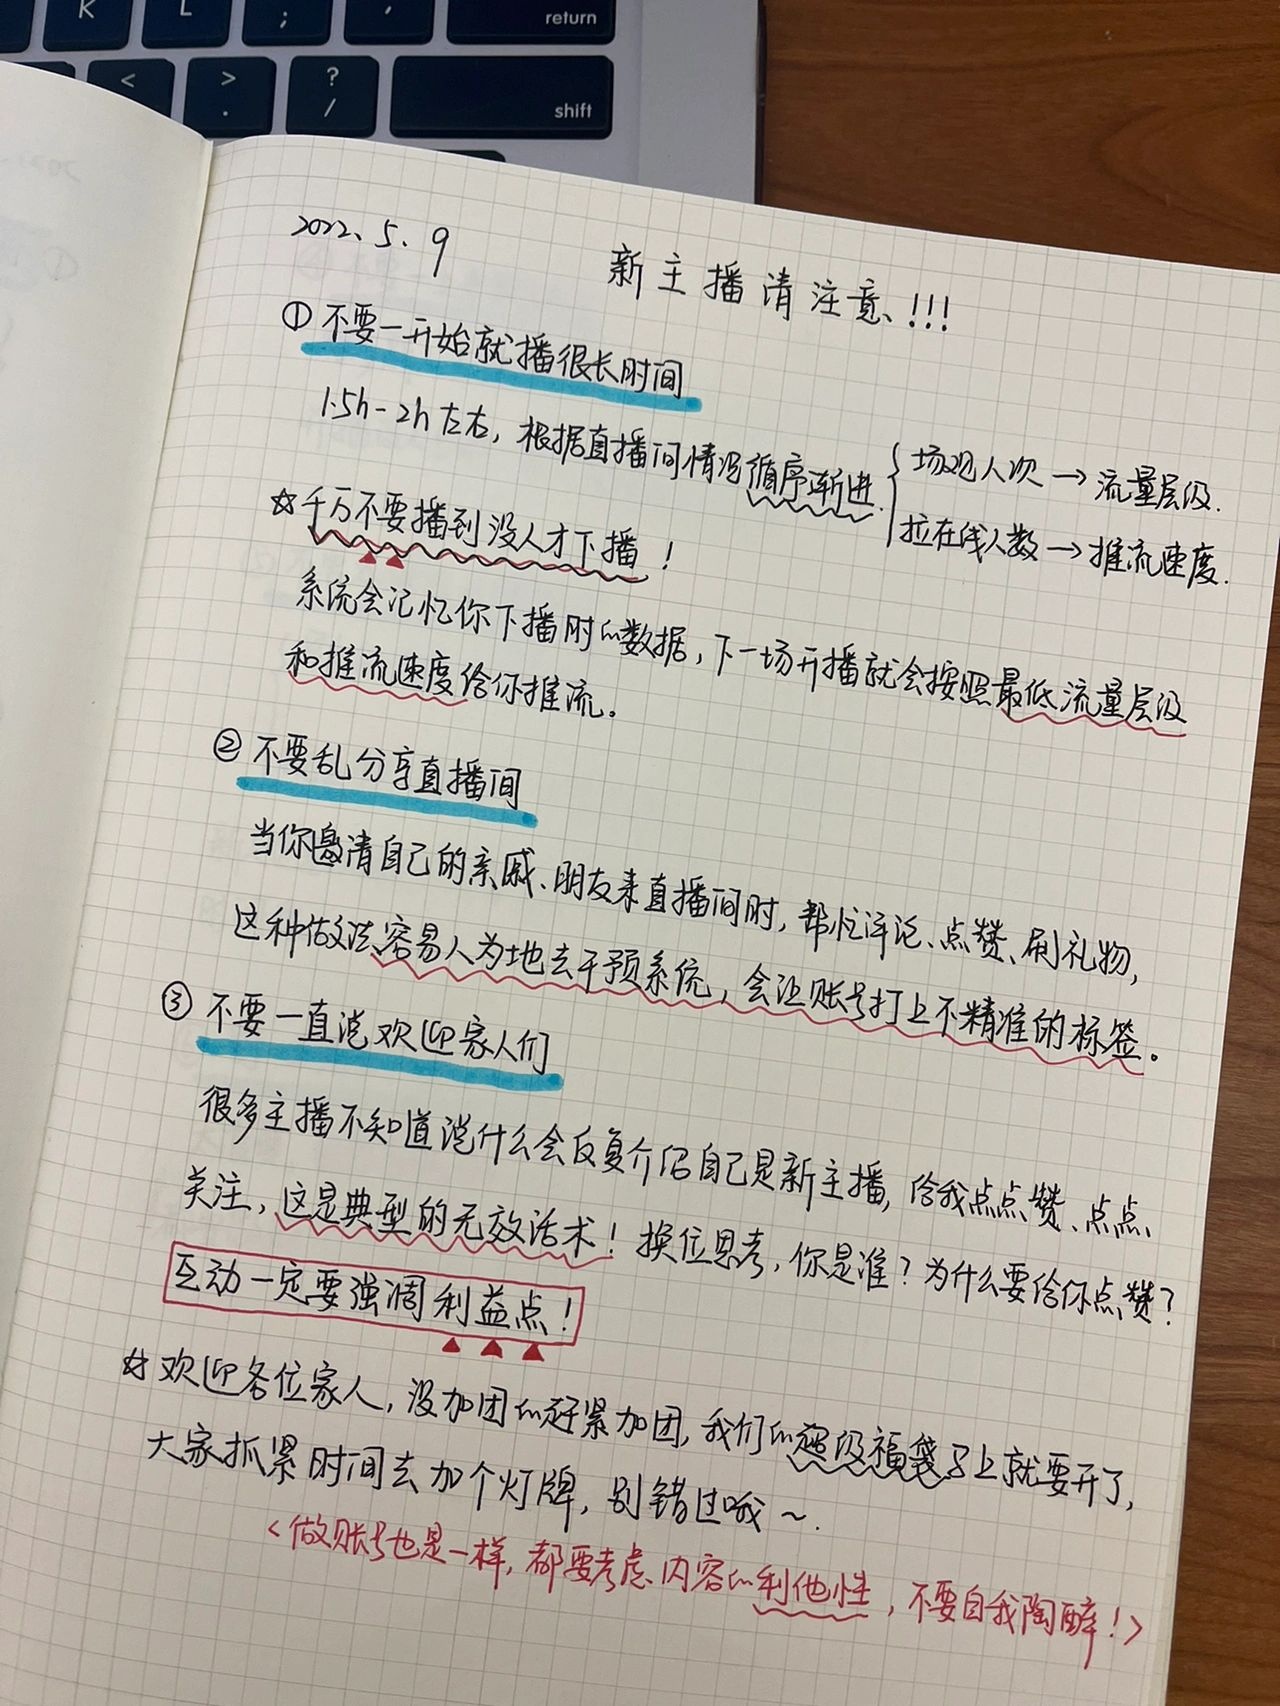 K L : ; " ' return
< , > . ? / shift
2022.5.9 新主播请注意!!!
① 不要一开始就播很长时间
1.5h-2h左右，根据直播间情况循序渐进. { 场观人次→流量层级.
拉在线人数→推流速度.
☆千万不要播到没人才下播！
系统会记忆你下播时的数据，下一场开播就会按照最低流量层级
和推流速度给你推流。
② 不要乱分享直播间
当你邀请自己的亲戚、朋友来直播间时，帮忙评论、点赞、刷礼物，
这种做法容易人为地去干预系统，会让账号打上不精准的标签。
③ 不要一直说欢迎家人们
很多主播不知道说什么会反复介绍自己是新主播，给我点点赞、点点
关注，这是典型的无效话术！换位思考，你是谁？为什么要给你点赞？
互动一定要强调利益点！
☆欢迎各位家人，没加团的赶紧加团，我们的超级福袋马上就要开了，
大家抓紧时间去加个灯牌，别错过哦～.
<做账号也是一样，都要考虑内容的利他性，不要自我陶醉！>